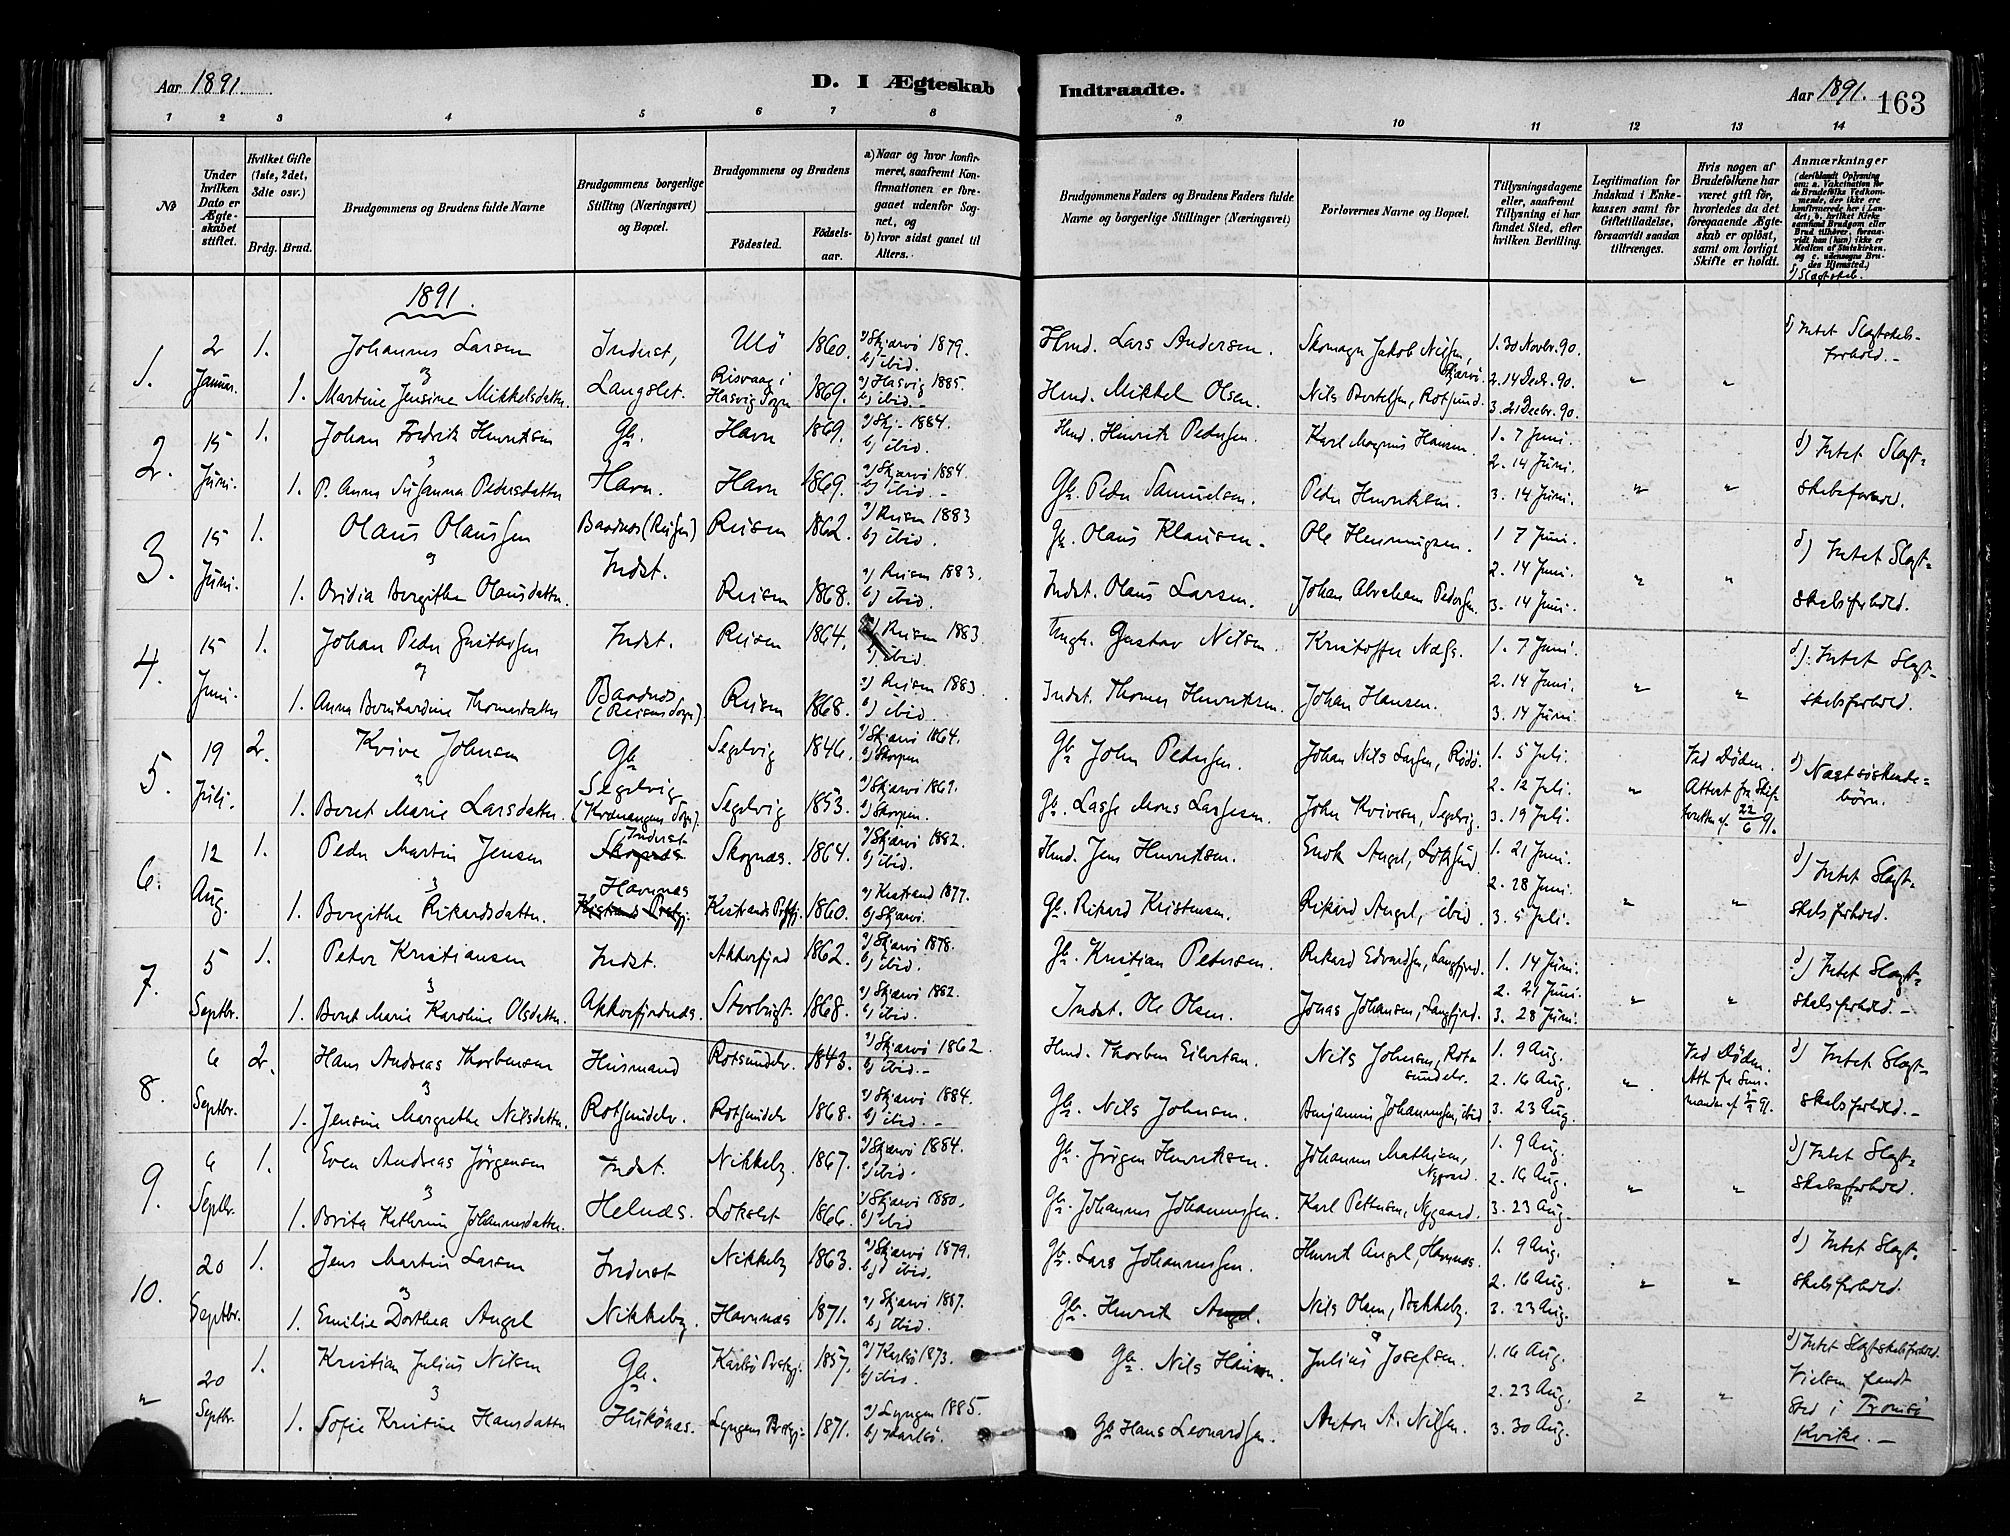 Aar 1891.
D. I Ægteskab Indtraadte.
Aar 1891. 163
1 2 3 4 5 6 7 8 9 10 11 12 13 14
No
Under hvilken Dato er Ægteskabet stiftet.
Hvilket Gifte (1ste, 2det, 3die osv.)
Brdg. Brud.
Brudgommens og Brudens fulde Navne
Brudgommens borgerlige Stilling (Næringsvei) og Bopæl.
Brudgommens og Brudens
Fødested. Fødselsaar.
a) Naar og hvor konfirmeret, saafremt Konfirmationen er foregaaet udenfor Sognet, og
b) hvor sidst gaaet til Alters.
Brudgommens Faders og Brudens Faders fulde Navne og borgerlige Stillinger (Næringsvei)
Forlovernes Navne og Bopæl.
Tillysningsdagene eller, saafremt Tillysning ei har fundet Sted, efter hvilken Bevilling.
Legitimation for Indskud i Enkekassen samt for Giftetilladelse, forsaavidt saadan tiltrænges.
Hvis nogen af Brudefolkene har været gift før, hvorledes da det foregaaende Ægteskab er opløst, samt om lovligt Skifte er holdt.
Anmærkninger (deriblandt Oplysning om: a. Vakcination for de Brudefolks Vedkommende, der ikke ere konfirmerede her i Landet; b. hvilket Kirkesamfund Brudgom eller Brud tilhører, forsaavidt han (hun) ikke er Medlem af Statskirken, og c. udensogns Brudes Hjemsted.)
d) Slægtskab.
1891.
1. 2 Januar. 1. Johannes Larsen Inderst, Ulø 1860. a) Skjærvø 1879. b) ibid. Hmd. Lars Andersen. Skomager Jakob Nilsen, Skjærvø. 1. 30 Novbr. 90. d) Intet Slægtskabsforhold. –
1. Martine Jensine Mikkelsdatter. Langslet. Risvaag i Hasvig Sogn 1869. a) Hasvig 1885. b) ibid. – Hmd. Mikkel Olsen. Nils Bertelsen, Rotsund. 2. 14 Decbr. 90. 3. 21 Decbr. 90. " "
2. 15 Juni. 1. Johan Fredrik Henriksen Gb. Havn 1869. a) Skj. 1884. b) ibid. Hmd. Henrik Pedersen. Karl Magnus Hansen. 1. 7 Juni. 2. 14 Juni. d) Intet Slægtskabsforhold.
1. P. Anna Susanna Pedersdatter Havn. Havn 1869. a) Skjærvø 1884. b) ibid. – Gb. Peder Samuelsen. Peder Henriksen. 3. 14 Juni. " "
3. 15 Juni. 1. Olaus Olaussen Baadnes (Reisen) Reisen 1862. a) Reisen 1883 b) ibid. Gb. Olaus Klausen. Ole Henningsen. 1 7 Juni. 2. 14 Juni. d) Intet Slægtskabsforhold.
1. Ovidia Bergithe Olausdatter. Indst. Reisen 1868. a) Reisen 1883. b) ibid. Indst. Olaus Larsen. Johan Abraham Pedersen. 3. 14 Juni. " "
4. 15 Juni. 1. Johan Peder Gustavsen Indst. Reisen 1864. a) Reisen 1883. b) ibid. Ungk. Gustav Nilsen. Kristoffer Næss. 1. 7 Juni. 2. 14 Juni. d) Intet Slægtskabsforhold.
1. Anna Bernhardine Thomasdatter Baadnes (Reisens Sogn) Reisen 1868. a) Reisen 1883. b) ibid. Indst. Thomas Henriksen. Johan Hansen. 3. 14 Juni " "
5. 19 Juli. 2. Kvive Johnsen Gb. Segelvig 1846. a) Skjærvø 1864. b) Skorpen Gb. John Pedersen. Johan Nils Larsen, Rødø. 1. 5 Juli. 2. 12 Juli. Ved Døden. d) Næstsøskendebørn.
1. Beret Marie Larsdatter. Segelvig (Kvænangens Sogn). Segelvig 1853. a) Skjærvø 1869. b) Skorpen. Gb. Lasse Mons Lassesen. John Kvivesen, Segelvig. 3. 19 Juli. " Attest fra Skifteretten af 22/6 91.
6. 12 Aug. 1. Peder Martin Jensen Inderst Skognæs Skognæs. 1864. a) Skjærvø 1882. b) ibid. Hmd. Jens Henriksen. Enok Angel, Løksund 1. 21 Juni. 2. 28 Juni. d) Intet Slægtskabsforhold.
1. Bergithe Rikardsdatter. Havnnæs Kistrands Prstgj. Kistrands Prstgj. 1860. a) Kistrand 1877. b) Skjærvø. Gb. Rikard Kristensen. Rikard Angel, ibid. 3. 5 Juli. " "
7. 5 Septbr. 1. Peter Kristiansen Indst. Akkarfjord 1862. a) Skjærvø 1878. b) ibid. Gb. Kristian Petersen. Rikard Edvardsen, Langfjord. 1. 14 Juni. 2. 21 Juni. d) Intet Slægtskabsforhold. –
1. Beret Marie Karoline Olsdatter. Akkarfjordnæs. Storbugt. 1868. a) Skjærvø 1882. b) ibid. Indst. Ole Olsen. Jonas Johansen, Langfjord. 3. 28 Juni. " "
8. 6 Septbr. 2. Hans Andreas Thorbensen Husmand Rotsundelv. 1843. a) Skjærvø 1862. b) ibid. – Hmd. Thorben Eilertsen. Nils Johnsen, Rotsundelv. 1. 9 Aug. 2. 16 Aug. Ved Døden. d) Intet Slægtskabsforhold. –
1. Jensine Margrethe Nilsdatter. Rotsundelv Rotsundelv 1868. a) Skjærvø 1884. b) ibid. – Gb. Nils Johnsen. Benjamin Johannessen, ibid 3. 23 Aug. "
9. 6 Septbr. 1. Even Andreas Jørgensen Indst. Nikkeby. 1867. a) Skjærvø 1884. b) ibid. Gb. Jørgen Henriksen. Johannes Mathisen, Nygaard. 1. 9 Aug. 2. 16 Aug. d) Intet Slægtskabsforhold.
1. Brita Kathrine Johannesdatter. Helnæs. Løkslet 1866. a) Skjærvø 1880. b) ibid Gb. Johannes Johannessen. Karl Pettersen, Nygaard. 3. 23 Aug. " "
10. 20 Septbr. 1. Jens Martin Larsen Inderst Nikkeby 1863. a) Skjærvø 1879. b) ibid. Gb. Lars Johannessen. Henrik Angel, Havnnæs. 1. 9 Aug. 2. 16 Aug. d) Intet Slægtskabsforhold.
1. Emilie Dorthea Angel Nikkeby. Havnnæs 1871. a) Skjærvø 1887. b) ibid. Gb. Henrik Angel. Nils Olsen, Bakkeby. 3. 23 Aug. " "
" 20 Septbr. 1. Kristian Julius Nilsen Gb. Karlsø Prstgj. 1857. a) Karlsø 1873. b) ibid. Gb. Nils Hansen. Julius Josefsen. 1. 16 Aug. 2. 23 Aug. d) Intet Slægtskabsforhold. Vielsen fandt Sted i Tromsø Kvike. –
1. Sofie Kristine Hansdatter Hukönæs. Lyngens Prstgj. 1871. a) Lyngen 1885. b) Karlsø. Gb. Hans Leonardsen. Anton A. Nilsen. 3. 30 Aug. " "